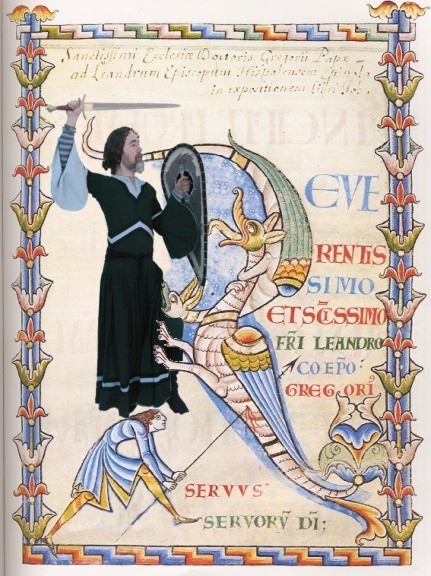 Sanctissimi Ecclesiæ Doctoris Gregorii Papæ
ad Leandrum Episcopum Hispalensem Epistola
in expositionem libri Iob.
R EVE
RENTIS
SIMO
ET SC̄ISSIMO
FR̄I LEANDRO
COEP̄O:
GREGORI,
SERVVS
SERVORV̄ DI;